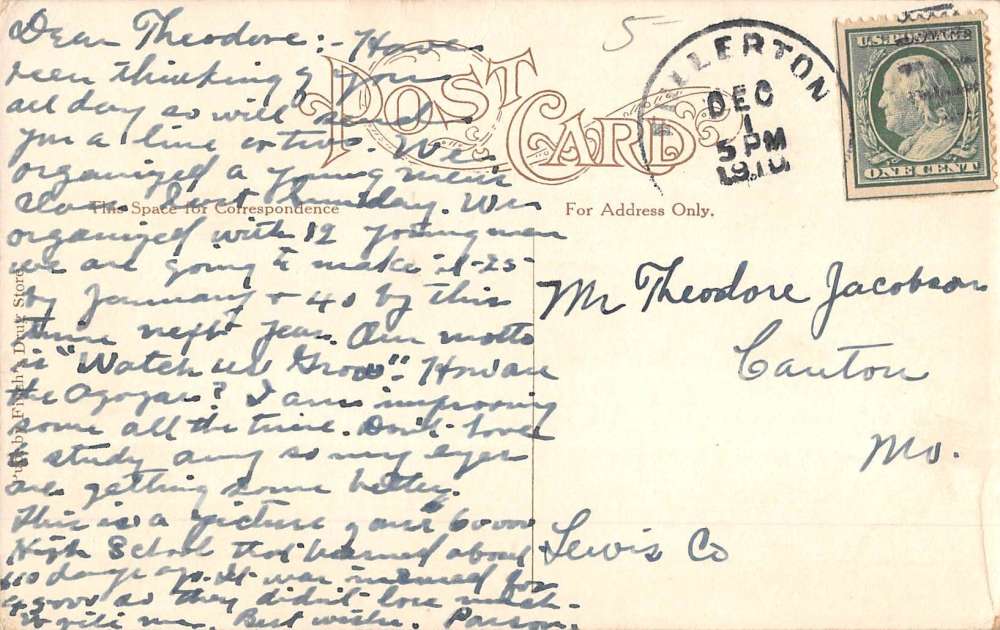 Dear Theodore:- Have
been thinking of you
all day so will send
you a line or two. We
organized a young men's
Class last Sunday. We
organized with 12 young men
we are going to make it 25
by January & 40 by this
time next year. Our motto
is "Watch us Grow". How are
the ? I am improving
some all the time. Don't have
to study any so my eyes
are getting some better.
This is a picture of our 60000
High School that burned about
10 days ago. It was insured for
so they didn't lose much.
Write me. Best wishes. Parson.
POST CARD
This Space for Correspondence
For Address Only.
Pub. by Finch's Drug Store
5
LLERTON
DEC
1
5 PM
1910
U.S. POSTAGE
ONE CENT
Mr Theodore Jacobson
Canton
Mo.
Lewis Co